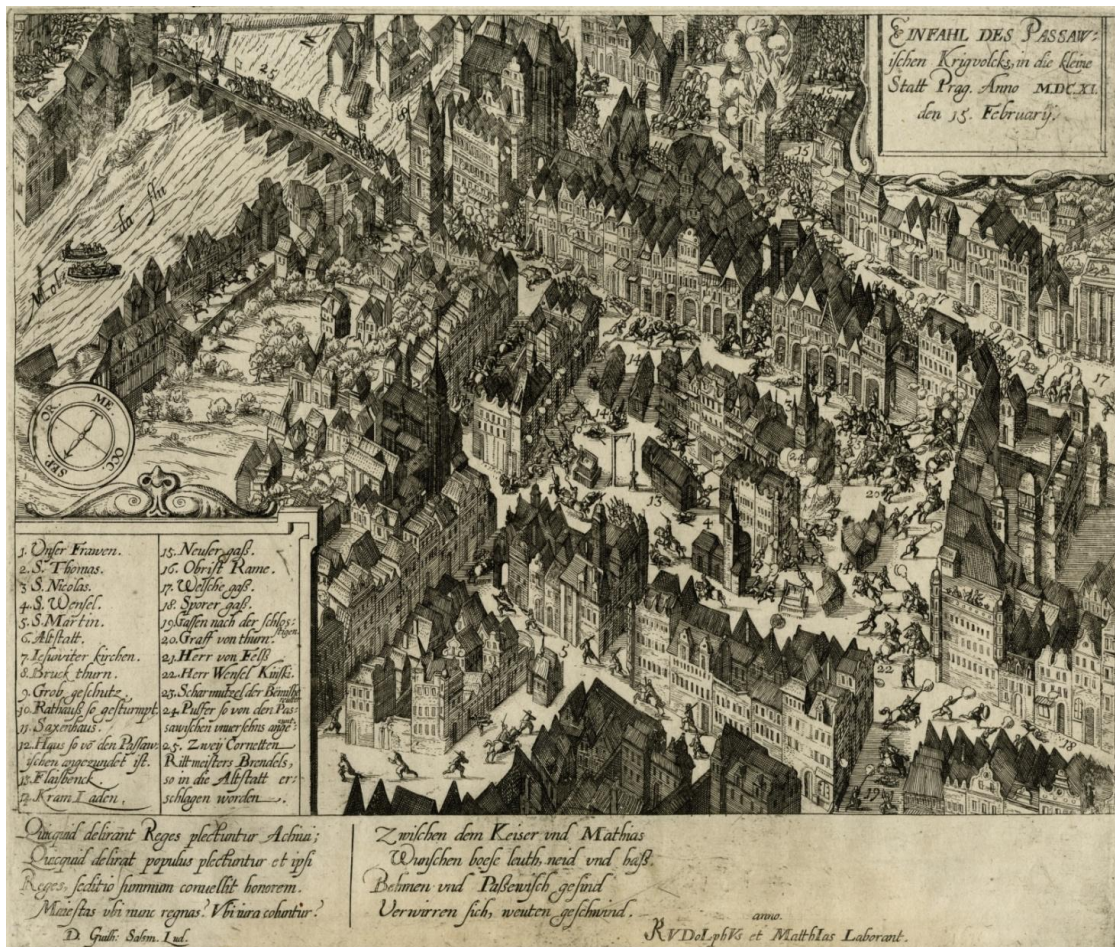 EINFAHL DES PASSAW-
ischen Krigvolcks, in die kleine
Statt Prag. Anno M.DC.XI.
den 15. February.
Molda flu
M
OR
ME.
OCC
SEP.
1. Unser Frawen.
2. S. Thomas.
3 S. Nicolas.
4. S. Wensel.
5. S. Martin.
6. Altstatt.
7. Iesuviter kirchen.
8. Bruck thurn.
9. Grob geschutz.
10. Rathauß so gesturmpt.
11. Saxenhaus.
12. Haus so vo den Passaw-
ischen angezundet ist.
13. Flaisbenck.
14. Kram Laden.
15. Neuser gaß.
16. Obrist Rame.
17. Welsche gaß.
18. Sporer gaß.
19 Gassen nach der schlos-
stigen
20. Graff von thurn.
21. Herr von Felß
22. Herr Wensel Kinski.
23. Scharmutzel der
24. Pulfer so von den Pas-
sawischen
25. Zweij Cornetten
Rittmeisters Brendels,
so in die Altstatt er-
schlagen worden.
25
12
16
15
17
17
14
14
13
4
20
14
5
22
18
19
Quicquid delirant Reges plectuntur Achiui;
Quicquid delirat populus plectuntur et ipsi
Reges, seditio summum conuellit honorem.
Maiestas vbi nunc regnas? Vbi iura coluntur?
D. Guilh: Salsm. Lud.
Zwischen dem Keiser vnd Mathias
Wunschen boese leuth, neid vnd haß.
Behmen vnd Paßewisch gesind
Verwirren sich, weuten geschwind.
anno.
RVDoLphVs et MatthIas Laborant.